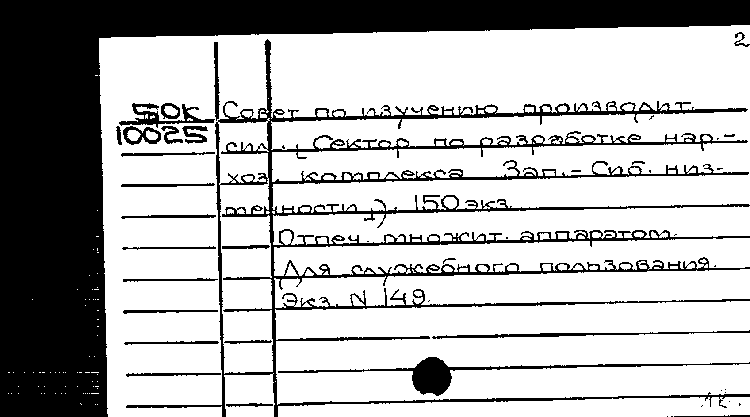 2
БОК Совет по изучению производит.
10025 сил. , Сектор по разработке нар.-
хоз. комплекса Зап.-Сиб. низ-
менности). 150 экз.
Отпеч. множит. аппаратом.
Для служебного пользования.
Экз. N 149.